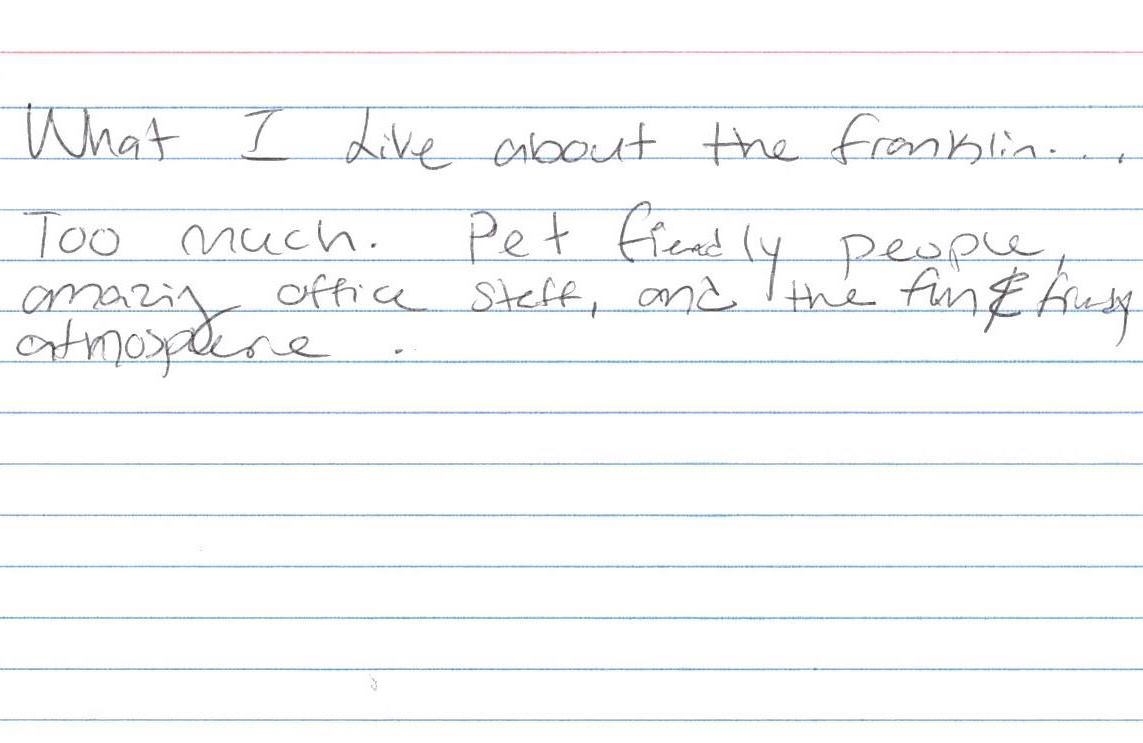 What I Live about the franklin...,
Too much. Pet fiendly people,
amazig office staff, and the fun &
atmosphere.